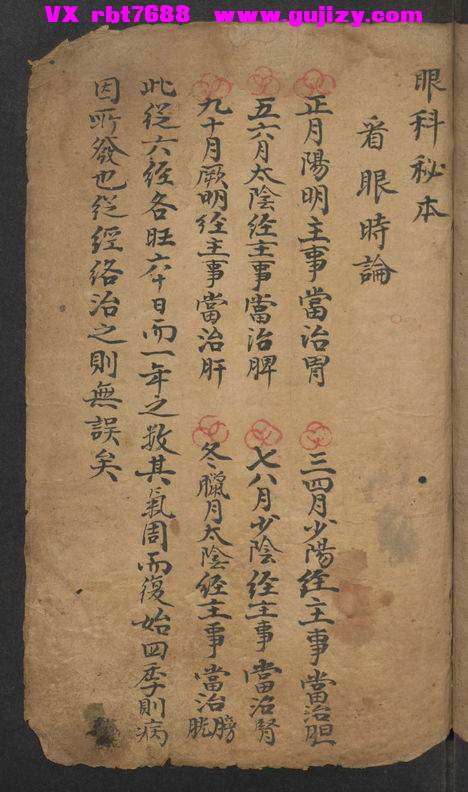 VX rbt7688 www.gujizy.com
眼科秘本
看眼時論
正月陽明主事當治胃 三四月少陽经主事當治胆
五六月太陰经主事當治脾 七八月少陰经主事當治腎
九十月厥明经主事當治肝 冬臘月太陰经主事當治膀胱
此從六经各旺六十日而一年之数其氣周而復始四季則病
因所發也從經络治之則無誤矣